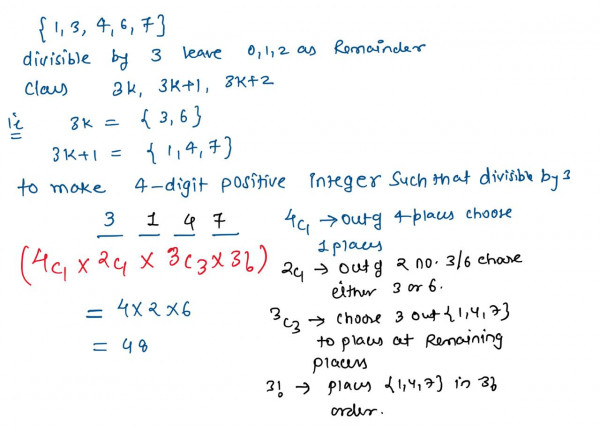 {1, 3, 4, 6, 7}
divisible by 3 leave 0,1,2 as Remainder
Class 3K, 3K+1, 3K+2
ie 3K = {3,6}
3K+1 = {1,4,7}
to make 4-digit positive integer such that divisible by 3
3 1 4 7
(4C1 × 2C1 × 3C3 × 3!)
= 4×2×6
= 48
4C1 → out of 4-places choose
1 places
2C1 → out of 2 no. 3/6 choose
either 3 or 6.
3C3 → choose 3 out {1,4,7}
to places at Remaining
places
3! → places {1,4,7} in 3!
order.